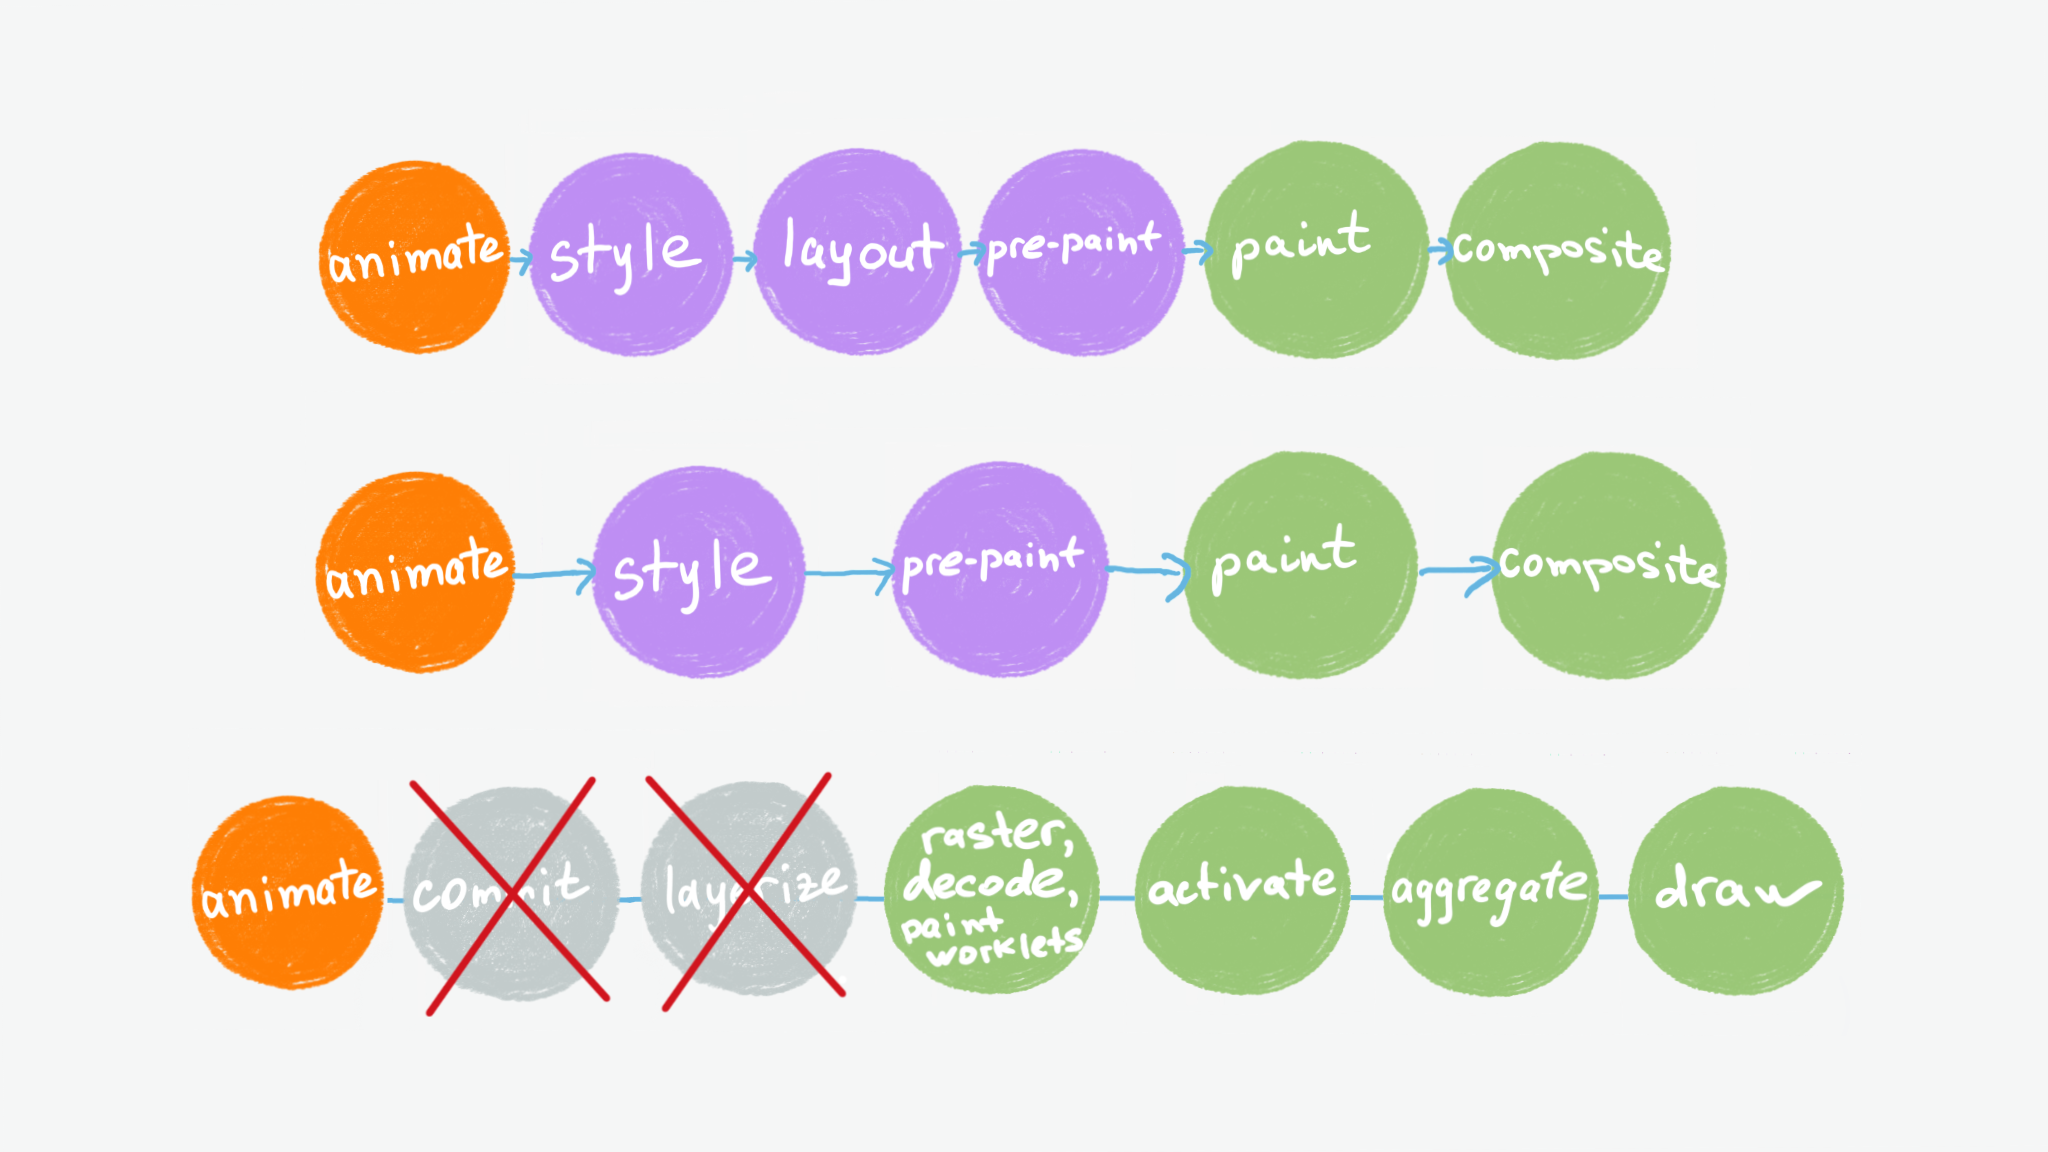 animate style layout pre-paint paint composite
animate style pre-paint paint composite
animate commit layerize raster, decode, paint worklets activate aggregate draw